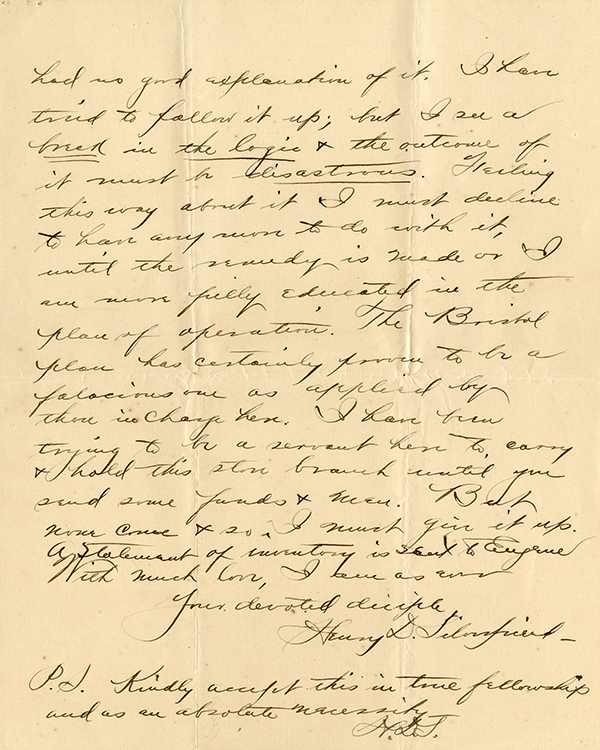 had no good explanation of it. I have
tried to follow it up; but I see a
break in the logic & the outcome of
it must be disastrous. Feeling
this way about it I must decline
to have any more to do with it,
until the remedy is made or I
am more fully educated in the
plan of operation. The Bristol
plan has certainly proven to be a
falacious one as applied by
those in charge here. I have been
trying to be a servant here to carry
& hold this store branch until you
send some funds & men. But
none come & so I must give it up.
A statement of inventory is sent to Eugene
With much love, I am as ever
Your devoted diciple,
Henry D. Silverfriend
P.S. Kindly accept this in true fellowship
and as an absolute necessity
H.D.S.